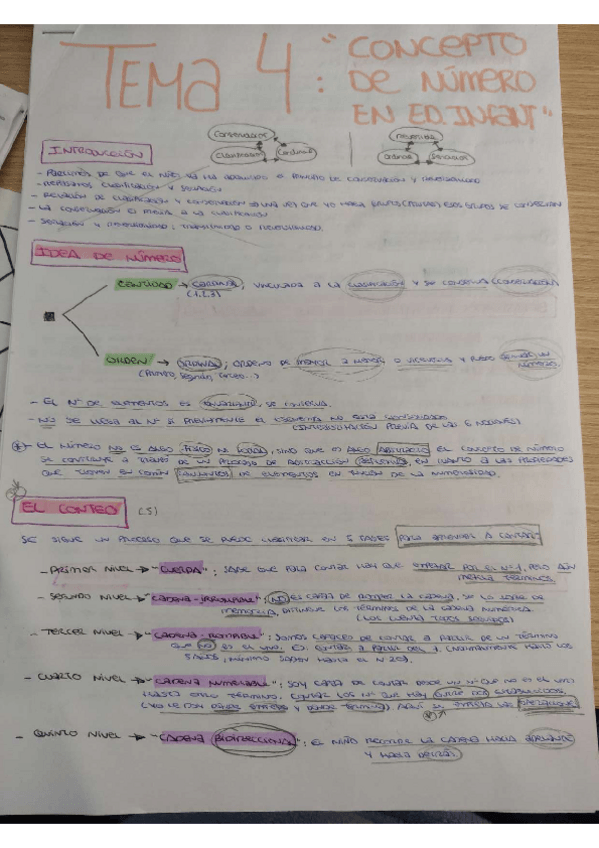 TEMA 4: "CONCEPTO
DE NÚMERO
EN ED. INFANT"
INTRODUCCIÓN
Conservación
Clasificación
Cardinal
Ordinal
Seriación
- PARTIMOS DE QUE EL NIÑO YA HA ADQUIRIDO EL PRINCIPIO DE CONSERVACIÓN Y REVERSIBILIDAD
CLASIFICACIÓN Y SERIACIÓN
- LA CONSERVACIÓN ES PREVIA A LA CLASIFICACIÓN
- SERIACIÓN Y REVERSIBILIDAD;
IDEA DE NÚMERO
CANTIDAD → CARDINAL, VINCULADA A LA CLASIFICACIÓN Y SE CONSERVA (CONSERVACIÓN)
(1,2,3)
ORDEN → ORDINAL; ORDENO DE MENOR A MAYOR O VICEVERSA Y PUEDO
(PRIMERO, SEGUNDO, TERCERO...)
- EL Nº DE ELEMENTOS ES INVARIANTE, SE CONSERVA.
- NO SE LLEGA AL Nº SI PREVIAMENTE EL ESQUEMA NO ESTÁ CONSOLIDADO
(PREVIA DE LAS 6 NOCIONES)
- EL NÚMERO NO ES ALGO FÍSICO NI, SINO QUE ES ALGO ABSTRACTO. EL CONCEPTO DE NÚMERO
SE CONSTRUYE A TRAVÉS DE UN PROCESO DE ABSTRACCIÓN REFLEXIVA, EN CUANTO A LAS PROPIEDADES
QUE TIENEN EN COMÚN CONJUNTOS DE ELEMENTOS EN FUNCIÓN DE LA NUMEROSIDAD.
EL CONTEO (5)
SE SIGUE UN PROCESO QUE SE PUEDE CLASIFICAR EN 5 FASES PARA APRENDER A CONTAR:
- PRIMER NIVEL → "CUERDA": SABE QUE PARA CONTAR HAY QUE EMPEZAR POR EL Nº1, PERO AÚN
MEZCLA TÉRMINOS.
- SEGUNDO NIVEL → "CADENA-IRROMPIBLE": NO ES CAPAZ DE ROMPER LA CADENA, SE LO SABE DE
MEMORIA, DISTINGUE LOS TÉRMINOS DE LA CADENA NUMÉRICA.
(LOS CUENTA TODOS SEGUIDOS)
- TERCER NIVEL → "CADENA-ROMPIBLE": SOMOS CAPACES DE CONTAR A PARTIR DE UN TÉRMINO
QUE NO ES EL UNO. EJ: CONTAR A PARTIR DEL 4. (NORMALMENTE HASTA LOS
5 AÑOS, MÍNIMO SABEN HASTA EL Nº 20).
- CUARTO NIVEL → "CADENA NUMERABLE": SOY CAPAZ DE CONTAR DESDE UN Nº QUE NO ES EL UNO
HASTA OTRO TÉRMINO. CONTAR LOS Nº QUE HAY ENTRE DOS ESTABLECIDOS.
(YO LE DIGO DÓNDE EMPIEZA Y DÓNDE TERMINA). AQUÍ SE EMPIEZA LAS OPERACIONES.
- QUINTO NIVEL → "CADENA BIDIRECCIONAL": EL NIÑO RECORRE LA CADENA HACIA ADELANTE
Y HACIA DETRÁS.